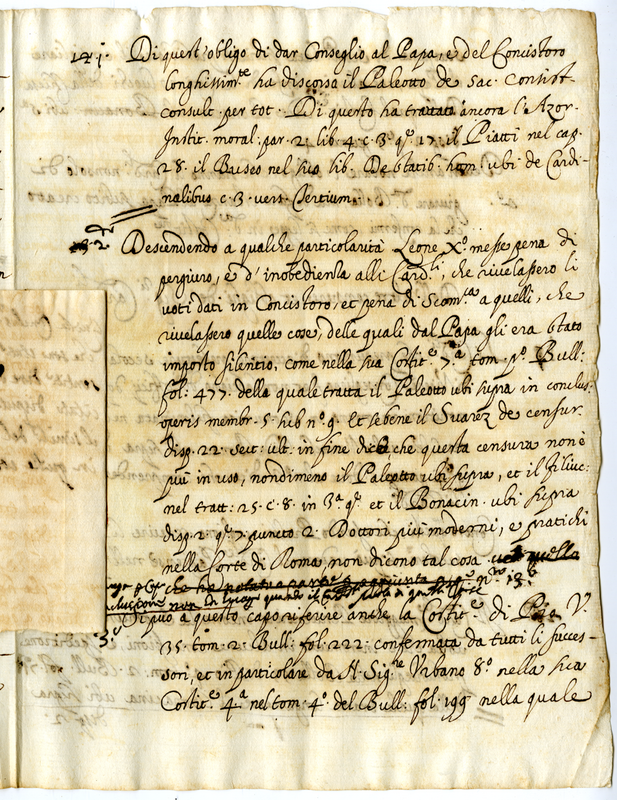 121. Di quest'obligo di dar Conseglio al Papa, e del Concistoro
longhissim.te ha discorso il Paleotto de sac. Consist.
consult. per tot. Di questo ha trattato ancora l'Azor.
Instit. moral: par. 2. lib. 4. c. 3. q. 17. il Piatti nel cap.
28. il Buseo nel suo lib. De statib. hom. ubi de Cardi-
nalibus c. 3. vers. Tertium.
2. Descendendo a qualche particolarità Leone X.o messe pena di
pergiuro, e d'inobedienza alli Card.li, che rivelassero li
voti dati in Concistoro, et pena di Scom.ca a quelli, che
rivelassero quelle cose, delle quali dal Papa gli era stato
imposto silentio, come nella sua Costit.e 7.a tom. p.o Bull:
fol. 477. della quale tratta il Paleotto ubi supra in conclus.
operis membr. 5. sub n.o 9. Et se bene il Suarez de censur.
disp. 22. sect: ult. in fine dice che questa censura non è
più in uso, nondimeno il Paleotto ubi supra, et il Filiuc:
nel tratt: 25. c. 8. in 3.a q. et il Bonacin. ubi supra
disp. 2. q. 7. puncto 2. Dottori più moderni, e pratichi
nella Corte di Roma, non dicono tal cosa
3. Si può a questo capo riferire anche la Costit.e di Pio V.
35. tom. 2. Bull: fol. 222. confermata da tutti li succes-
sori, et in particolare da N. Sig.re Urbano 8.o nella sua
Costit.e 4.a nel tom. 4.o del Bull: fol. 199 nella quale